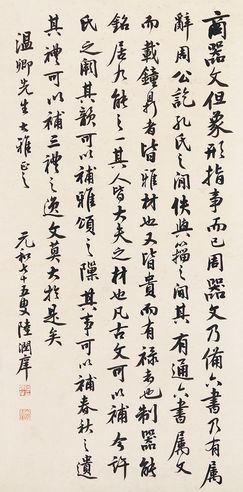 商器文但象形指事而已周器文乃備六書乃有属
辭周公訖孔氏之間佚與籀之間其有通六書属文
而載鐘鼎者皆雅材也又皆貴而有禄者也制器能
銘居九能之一其人皆大夫之材也凡古文可以補今許
氏之闕其韻可以補雅頌之隙其事可以補春秋之遺
其禮可以補三禮之逸文莫大於是矣
温卿先生大雅正之
元和七十五叟陸潤庠